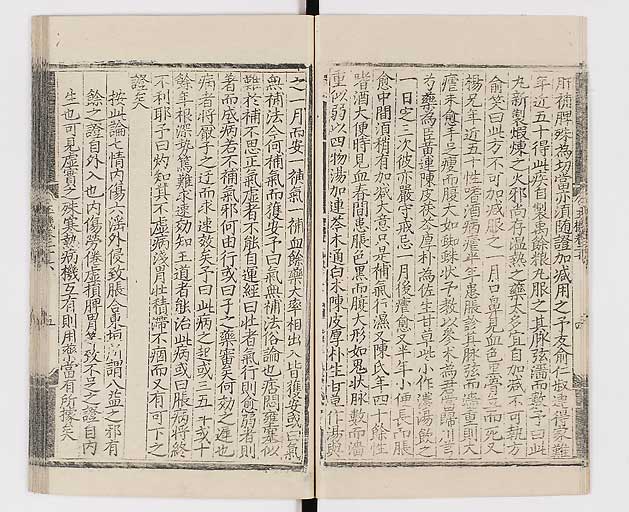 肝補脾殊為切當亦須随證加减用之予友俞仁叔連得家難
年近五十得此疾自製禹餘粮丸服之其脉弦濇而數予曰此
丸新製煅煉之火邪尚存温熱之藥太多宜自加减不可執方
俞笑曰此方不可加减服之一月口鼻見血色骨立而死又
楊兄年近五十性嗜酒病瘧半年患脹診其脉弦而濇重則大
瘧未愈手足瘦而腹大如蜘蛛狀予教以參朮為君當歸川芎
芍藥為臣黄連陳皮茯苓厚朴為佐生甘草些小作濃湯飲之
一日定三次彼亦嚴守戒忌一月後瘧愈又半年小便長而脹
愈中間須稍有加减大意只是補氣行濕又陳氏年四十餘性
嗜酒大便時見血春間患脹色黒而腹大形如鬼狀脉數而濇
重似弱以四物湯加連芩木通白朮陳皮厚朴生甘草作湯與
之一月而安一補氣一補血餘藥大率相出入皆獲安或曰氣
無補法今何補氣而獲安予曰氣無補法俗論也痞悶壅塞似
難於補不思正氣虚者不能自運經曰壯者氣行則愈弱者則
著而成病若不補氣邪何由行或曰子之藥審矣何効之遲也
病者將厭子之迂而求速效矣予曰此病之起或三五年或十
餘年根深勢篤難求速効知王道者能治此病或曰脹病將終
不利耶予曰灼知其不虚病淺胃壮積滯不痼而又有可下之
證矣
按此論七情内傷六淫外侵致脹合東垣所謂八益之邪有
餘之證自外入也内傷勞倦虚損脾胃等致不足之證自内
生也可見虚實之殊寒熱病機互有則用藥當有所據矣